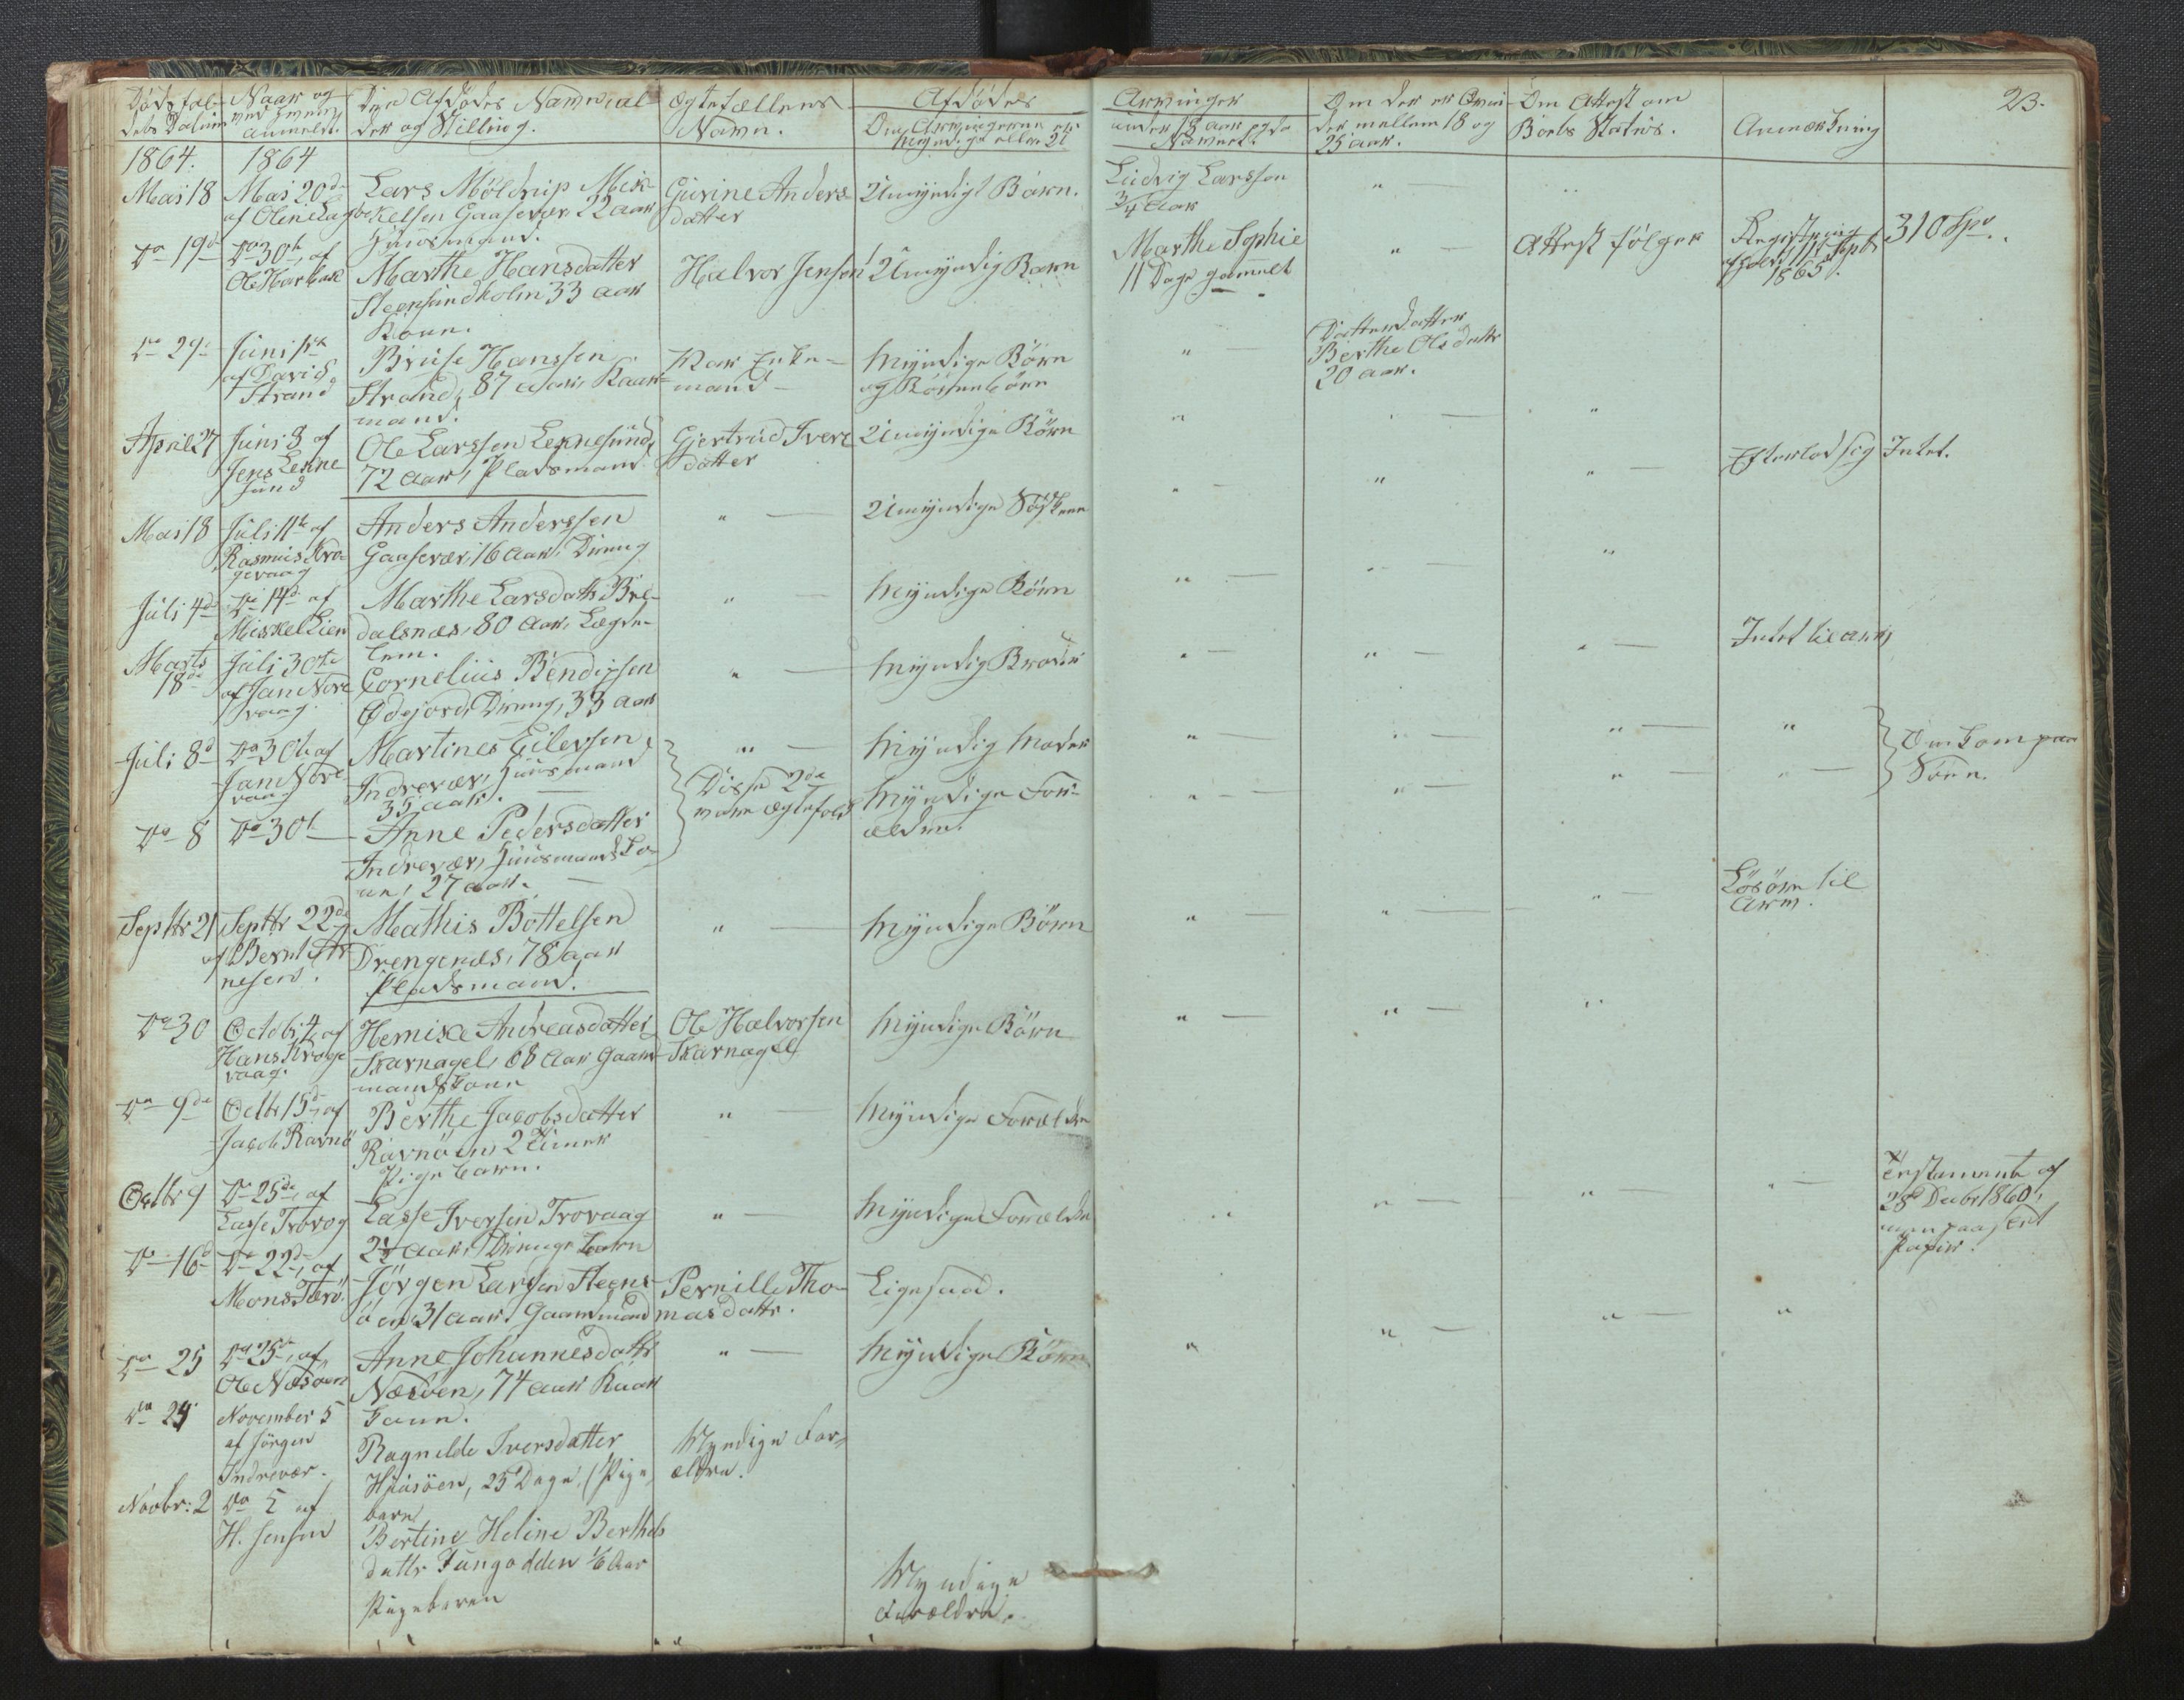 23.
Dødsfal-
dets Datum
Naar og
ved hvem
anmeldt.
Den Afdødes Navn, Al-
der og Stilling.
Ægtefællens
Navn.
Afdødes
Om Arvingerne ere
Myndige eller U
Arvinger
under 18 Aar og de
Navnet.
Om der er Arvin-
der mellem 18 og
25 Aar.
Om Attest om
Boets Status.
Anmærkning
1864.
1864
Mai 18
Mai 20de
af Ole
Lars Möldrup Mik-
kelsen Gaasevær 22 Aar
Huusmand.
Gurine Anders-
datter
Umyndigt Barn.
Ludvig Larssen
3/4 Aar
"
Do 19de
Do 30te, af
Ole Harbak
Marthe Hansdatter
Steensundholm 33 Aar
Kone.
Halvor Jensen
1 Umyndig Barn
Marthe Sophie
11 Dage gammelt
" —
Attest følger
Registrering
afholdt 11te Septb
1865.
310 Spd.
Do 29de
Juni 1ste
af David
Strand
Bruse Hanssen
Strand, 87 Aar, Kaar-
mand.
Var Enke-
mand —
Myndige Börn
og Börnebörn
" —
Datterdatter
Berthe Olsdatter
20 Aar.
April 27
Juni 3 af
Jens Lekne
sund
Ole Larssen Leknesund,
72 Aar, Pladsmand
Gjertrud Ivers
datter
Umyndige Börn
"
"
Efterlod sig Intet.
Mai 18
Juli 11te af
Rasmus Kra-
gevaag
Anders Anderssen
Gaasevær, 16 Aar, Dreng
" —
Umyndige Söskene
" —
"
" —
Juli 4de
Do 14de af
Mikkel Lien
Marthe Larsdatter Bre-
dalsnæs, 80 Aar, Lægds-
lem.
" —
Myndige Börn
" —
" —
"
Marts
18de
Juli 30te
af Jan Nore
vaag.
Cornelius Bendixsen
Ødejord, Dreng, 33 Aar
" —
Myndig Broder
" —
" —
" —
Intet til Arv
Juli 8de
Do 30te af
Jan Nore
vaag
Martines Eilersen,
Indrevær, Huusmand
35 Aar. —
" —
Myndig Moder
" —
" —
" —
"
Omkom paa
Söen.
Do 8
Do 30te —
Anne Pedersdatter
Indrevær, Huusmands Ko-
ne, 27 Aar. —
Disse 2de
vare Ægtefolk
Myndige For-
ældre.
" —
" —
" —
" —
Septbr 21
Septbr 22de
af Bernt Ar
nesen.
Mathis Bottelsen
Drengenes, 78 Aar
Pladsmand.
" —
Myndige Börn
" —
" —
" —
Løsøre til
Arv.
Do 30
Octobr 4, af
Hans Krage
vaag.
Hemike Andreasdatter
Skarnagel, 68 Aar Gaard-
mandskone
Ole Halvorsen
Skarnagel
Myndige Börn
" —
" —
"
Do 9de
Octbr 15de, af
Jacob Ravnö
Berthe Jacobsdatter
Ravnöen, 2 Timer
Pigebarn.
" —
Myndige Forældre
Octbr 9
Do 25de, af
Lasse Trovog
Lasse Iversen Trovaag
2½ Aar, Drengebarn
" —
Myndige Forældre
"
" —
" —
" —
Testamente af
28de Decbr 1860,
Papir.
Do 16de
Do 22de, af
Mons Tærö.
Jörgen Larsen Steens-
öen 31 Aar, Gaardmand
Pernille Tho-
masdattr.
Ligesaa.
Do 25
Do 25de, af
Ole Næsöen
Anne Johannesdattr
Næsöen, 74 Aar Kaar
kone.
" —
Myndige Börn
"
" —
" —
"
Do 24
November 5
af Jörgen
Indrevær.
Ragnilde Iversdatter
Husöen, 25 Dage, (Pige
barn)
Myndige For-
ældre.
Novbr: 2
Do 5 af
H. Jensen
Bertine Heline Berthels
dattr Tungodden 1/6 Aar
Pigebarn
Myndige
Forældre.